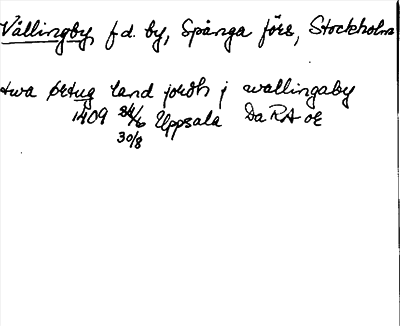 Vällingby, f d. by, Spånga förs, Stockholm
twa ørtug land jordh j wallingaby
1409 24/6 Uppsala Da RA or
30/8